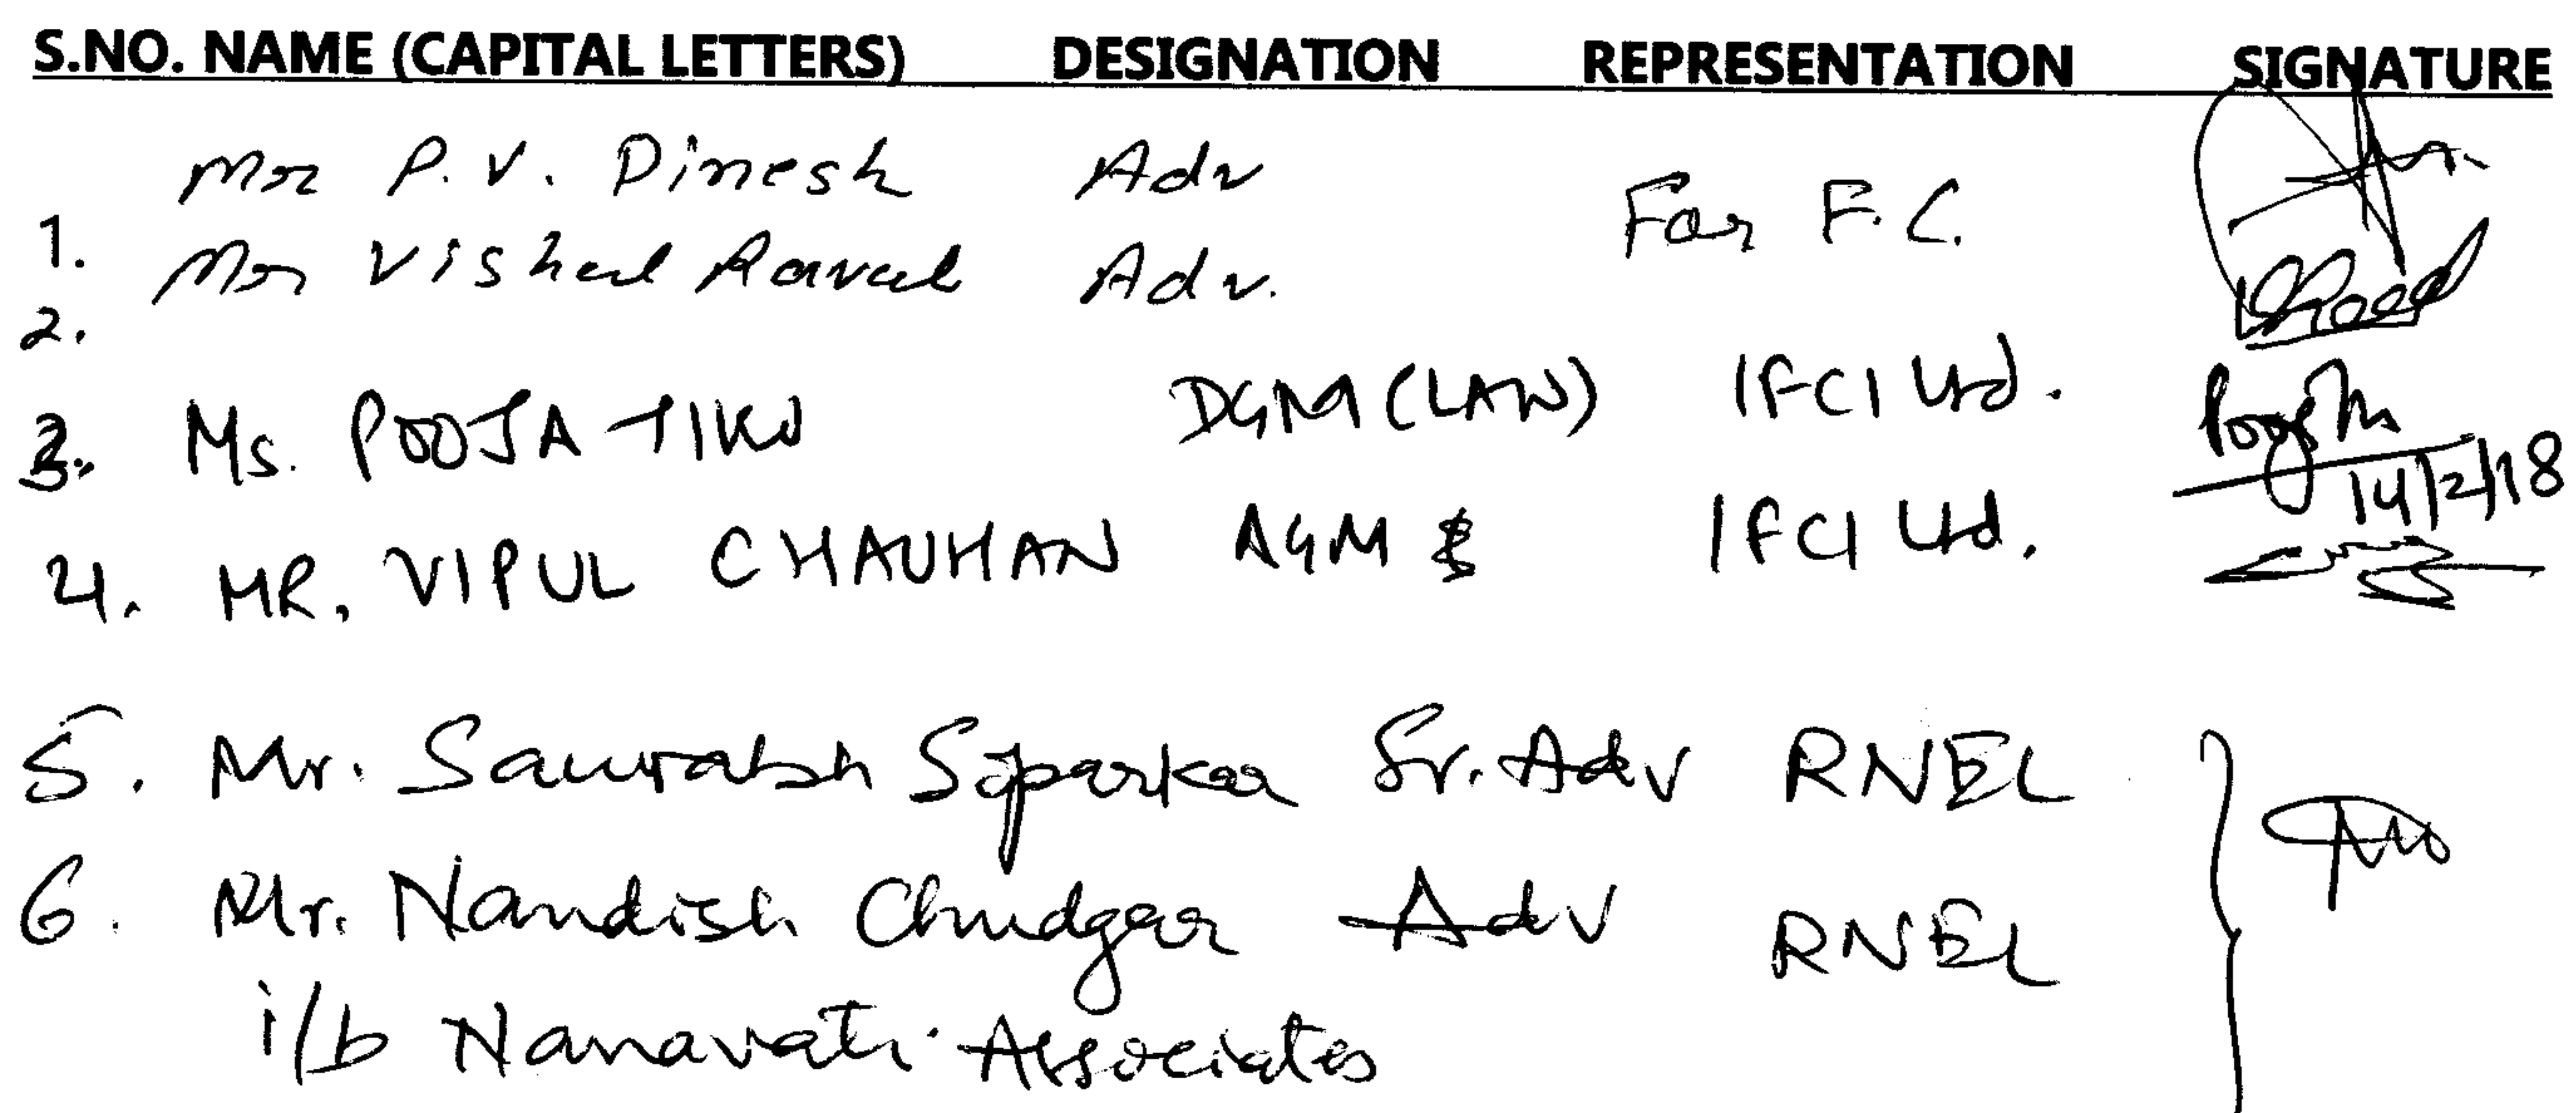 S.NO. NAME (CAPITAL LETTERS) DESIGNATION REPRESENTATION SIGNATURE
Mr P.V. Dinesh Adv
1. For F.C.
Mr Vishal Raval Adv.
2.
3. Ms. POOJA TIKU DGM (LAW) IFCI Ltd.
14/2/18
4. MR. VIPUL CHAUHAN AGM IFCI Ltd.
5. Mr. Saurabh Soparkar Sr. Adv RNEL
6. Mr. Nandish Chudgar Adv RNEL
i/b Nanavati Associates